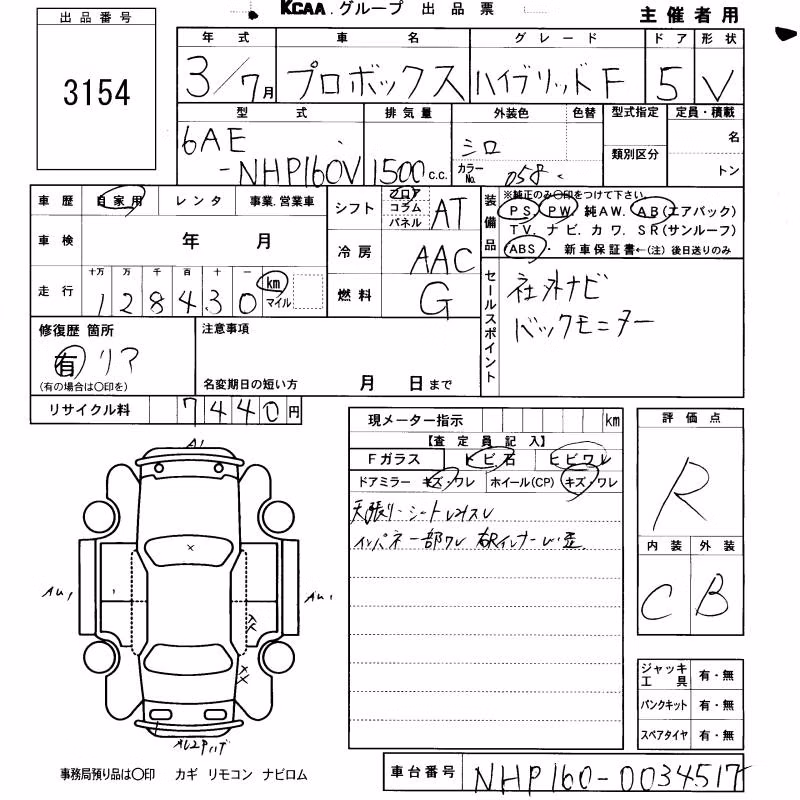 KCAA.グループ 出品票
主催者用
出品番号
3154
年式 車名 グレード ドア 形状
3/7月 プロボックス ハイブリッドF 5 V
型式 排気量 外装色 色替 型式指定 定員・積載
6AE
-NHP160V 1500c.c. シロ 類別区分 名
カラーNo. 058 トン
車歴 自家用 レンタ 事業.営業車
シフト フロア コラム パネル AT
装備品 ※純正のみ〇印をつけて下さい。
PS. PW. 純AW. AB(エアバック)
TV. ナビ. カワ. SR(サンルーフ)
ABS・ 新車保証書←(注) 後日送りのみ
車検 年 月
冷房 AAC
走行 十万 万 千 百 十 一
128430 km マイル
燃料 G
セールスポイント
社外ナビ
バックモニター
修復歴 箇所
有 リア
(有の場合は〇印を)
注意事項
名変期日の短い方 月 日まで
リサイクル料 7440円
現メーター指示 km
【査定員記入】
Fガラス トビ石 ヒビワレ
ドアミラー キズ・ワレ ホイール(CP) キズ・ワレ
天張り・シート
インパネ一部ワレ
評価点
R
内装 外装
C B
A1
AU1 AU1
×
××
ジャッキ工具 有・無
パンクキット 有・無
スペアタイヤ 有・無
事務局預り品は〇印 カギ リモコン ナビロム
車台番号 NHP160-0034517